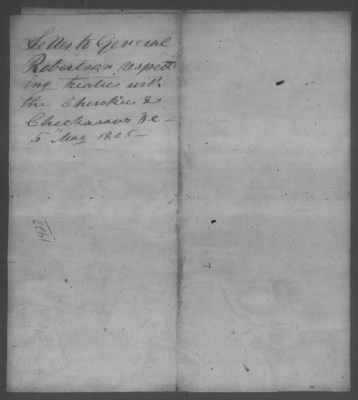 Letter to General
Robertson respect
ing treaties with
the Cherokees &
Chickasaws &c –
5 May 1805 –